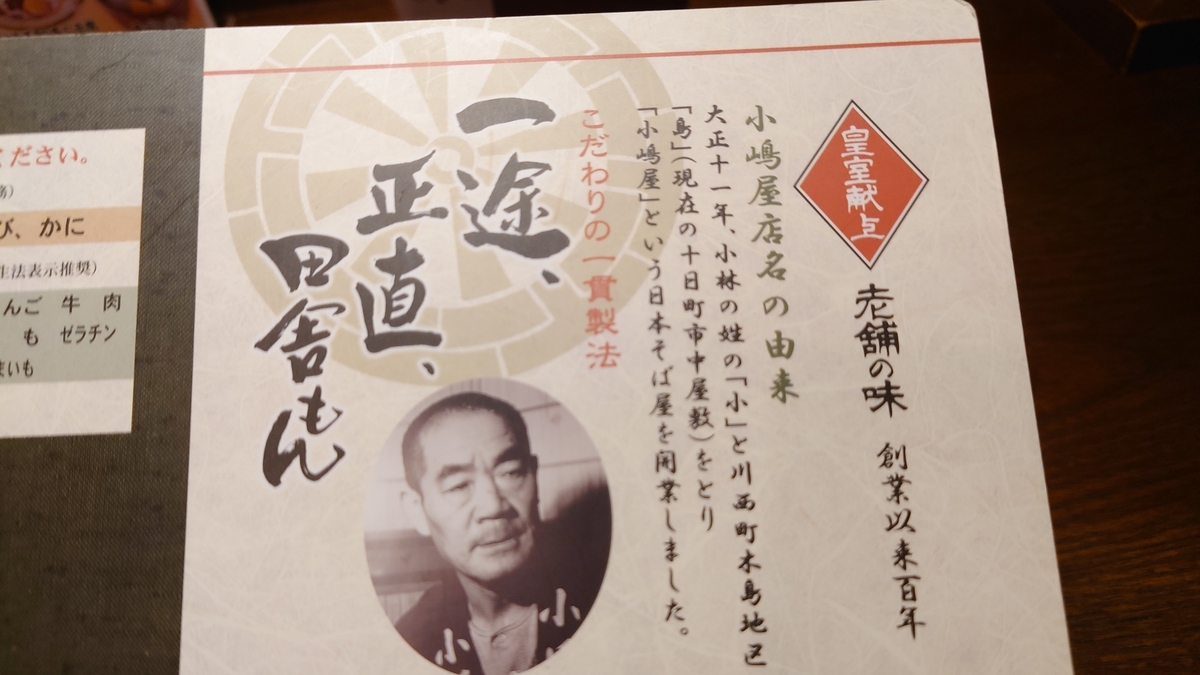 皇室献上
老舗の味 創業以来百年
小嶋屋店名の由来
大正十一年、小林の姓の「小」と川西町木島地区
「島」(現在の十日町市中屋敷)をとり
「小嶋屋」という日本そば屋を開業しました。
こだわりの一貫製法
一途、
正直、
田舎もん
小
小
ください。
び、かに
生法表示推奨)
んご 牛 肉
も ゼラチン
まいも